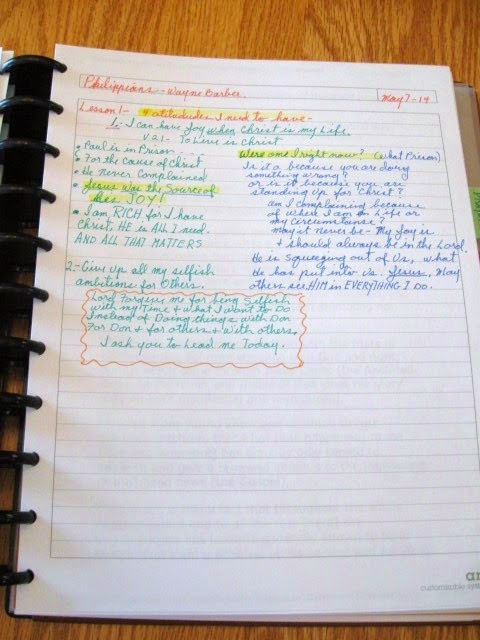 Philippians - Wayne Barber
May 7-14
Lesson 1 - 4 atitududes I need to have -
1. I can have Joy when Christ is my Life.
V 21 - To Live is Christ
• Paul is in Prison
• For the Cause of Christ
• He never Complained
• Jesus was the Source of
His JOY!
• I am RICH for I have
Christ, HE is ALL I need
AND ALL THAT MATTERS
Were am I right now? (what Prison)
Is it a because you are doing
something wrong?
or is it because you are
standing up for Christ?
am I complaining because
of where I am in Life or
my circumstance?
may it never be - My Joy is
& should always be in the Lord.
He is squeezing out of Us, what
He has put into us. Jesus, May
others see HIM in EVERYTHING I DO.
2. - Give up all my selfish
ambitions for Others.
Lord Forgive me for being Selfish
with my Time & what I want to Do
instead of Doing things with Don
For Don & for others & with others.
I ask you to Lead me Today.
customizable